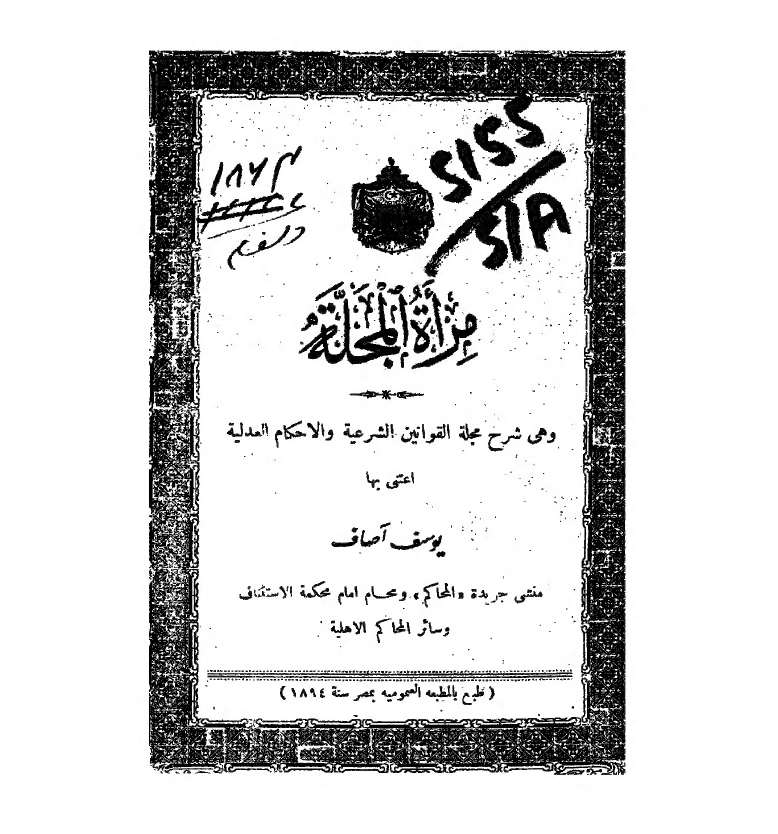 مِرْآةُ الْمَجَلَّةِ
وهي شرح مجلة القوانين الشرعية والاحكام العدلية
اعتنى بها
يوسف آصاف
منشئ جريدة «المحاكم» ومحام امام محكمة الاستئناف
وسائر المحاكم الاهلية
( طبع بالمطبعه العموميه بمصر سنة ١٨٩٤ )